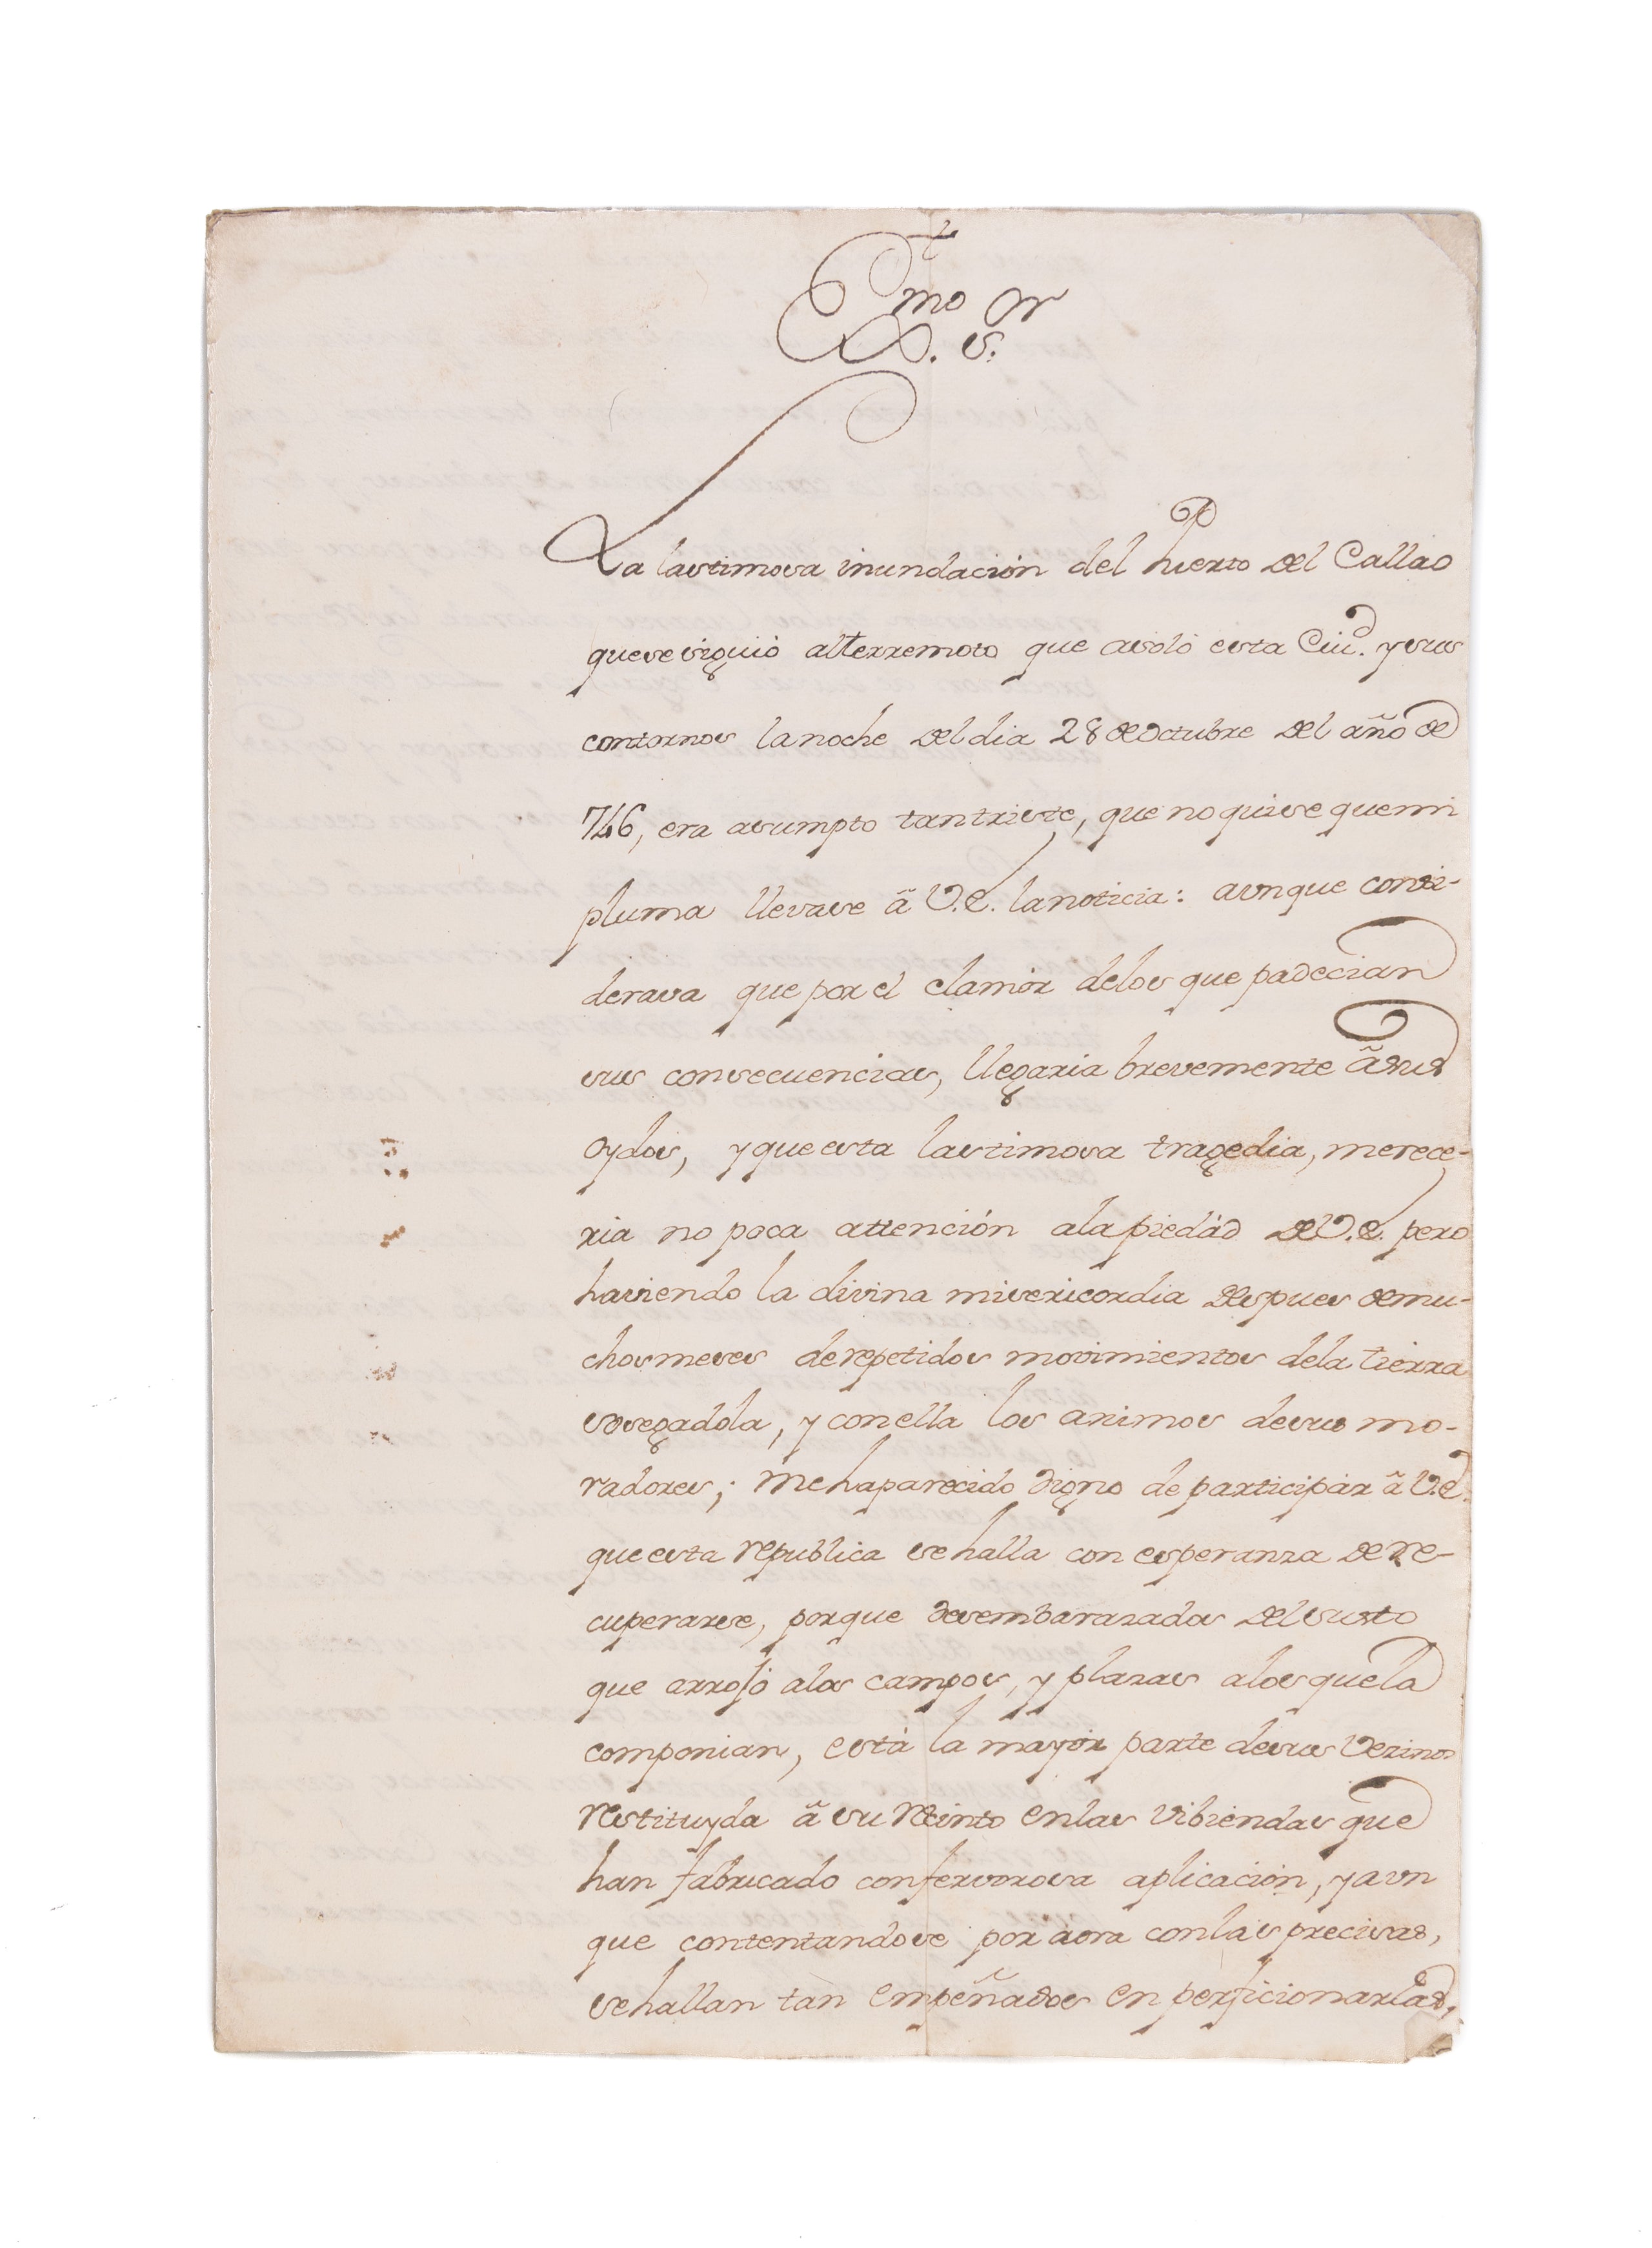 Exmo Sr
S.
La lastimosa inundación del Puerto del Callao
que se siguió al terremoto que asoló esta Ciud. y sus
contornos la noche del dia 28 de Octubre del año de
746, era asumpto tan triste, que no quise que mi
pluma llevase ã V.E. la noticia: aunque consi-
derava que por el clamór de los que padecian
sus consecuencias, llegaria brevemente ã sus
oydos, y que esta lastimosa tragedia, merece-
ria no poca attención a la piedád de V.E. pero
haviendo la divina misericordia despues de mu-
chos meses de repetidos movimientos de la tierra
sosegadola, y con ella los animos de sus mo-
radores; me ha parecido digno de participár ã V.E.
que esta republica se halla con esperanza de re-
cuperarse, porque desembarazados del susto
que arrojó a los campos, y plazas a los que la
componian, està la mayór parte de sus Vezinos
restituyda ã su recinto en las vibiendas que
han fabricado con fervorosa aplicación, y aun
que contentandose por aora con las precisas,
se hallan tàn empeñados en perficionarlas,